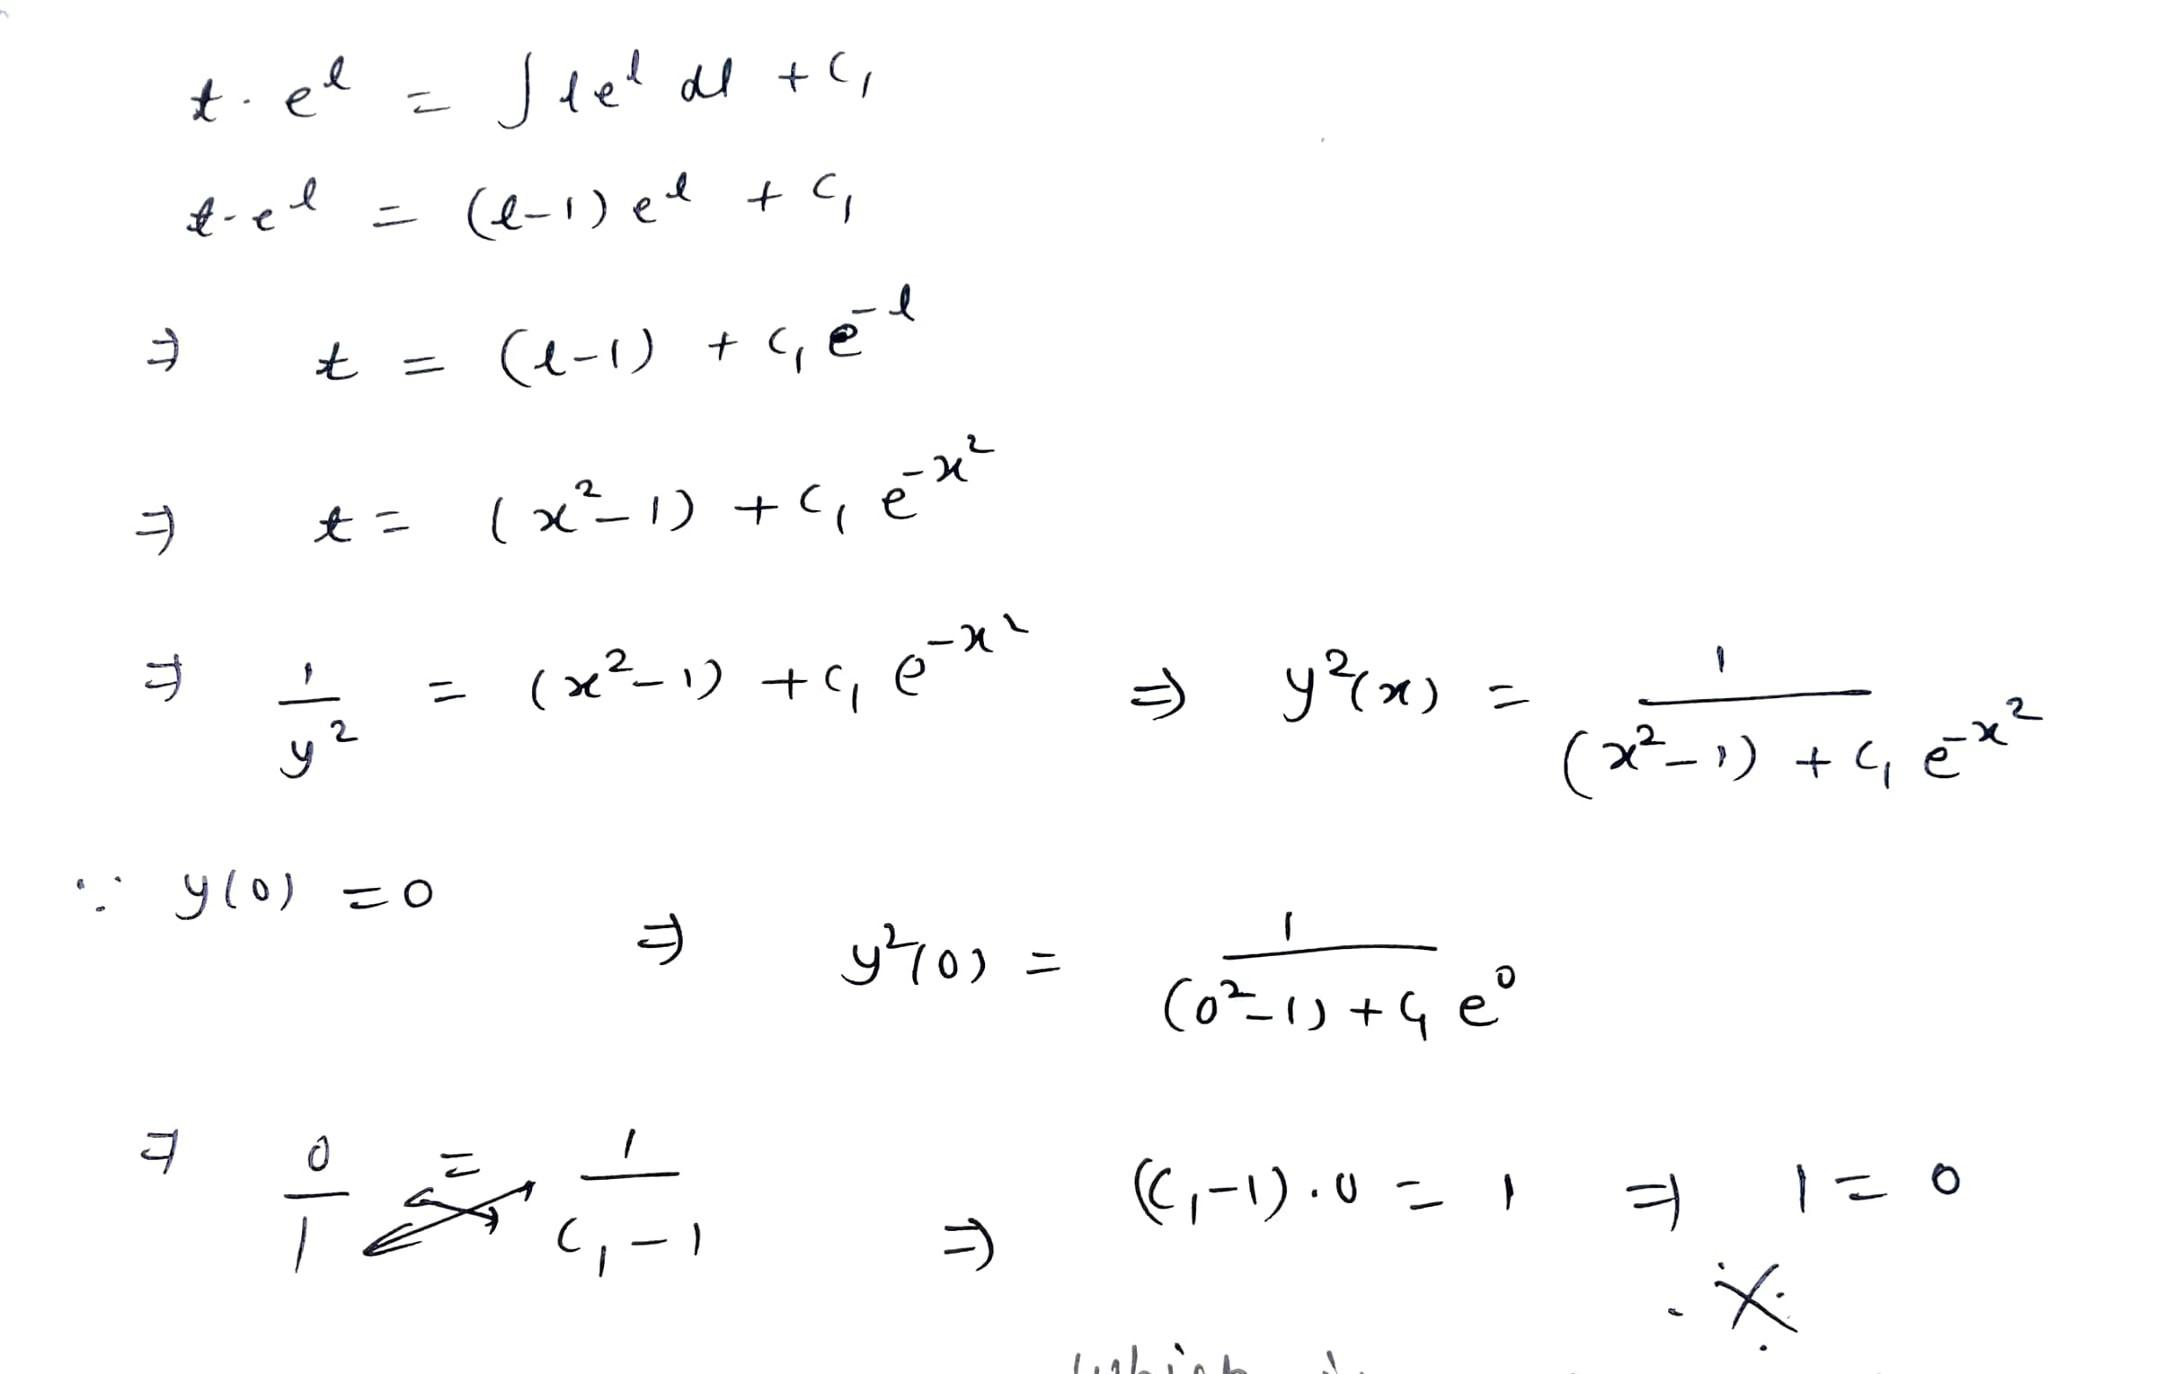 t · e^l = ∫ l e^l dl + C₁
t · e^l = (l-1) e^l + C₁
⇒ t = (l-1) + C₁ e^-l
⇒ t = (x²-1) + C₁ e^-x²
⇒ 1/y² = (x²-1) + C₁ e^-x² ⇒ y²(x) = 1/((x²-1) + C₁ e^-x²)
∵ y(0) = 0 ⇒ y²(0) = 1/((0²-1) + C₁ e⁰)
⇒ 0/1 = 1/(C₁-1) ⇒ (C₁-1).0 = 1 ⇒ 1 = 0